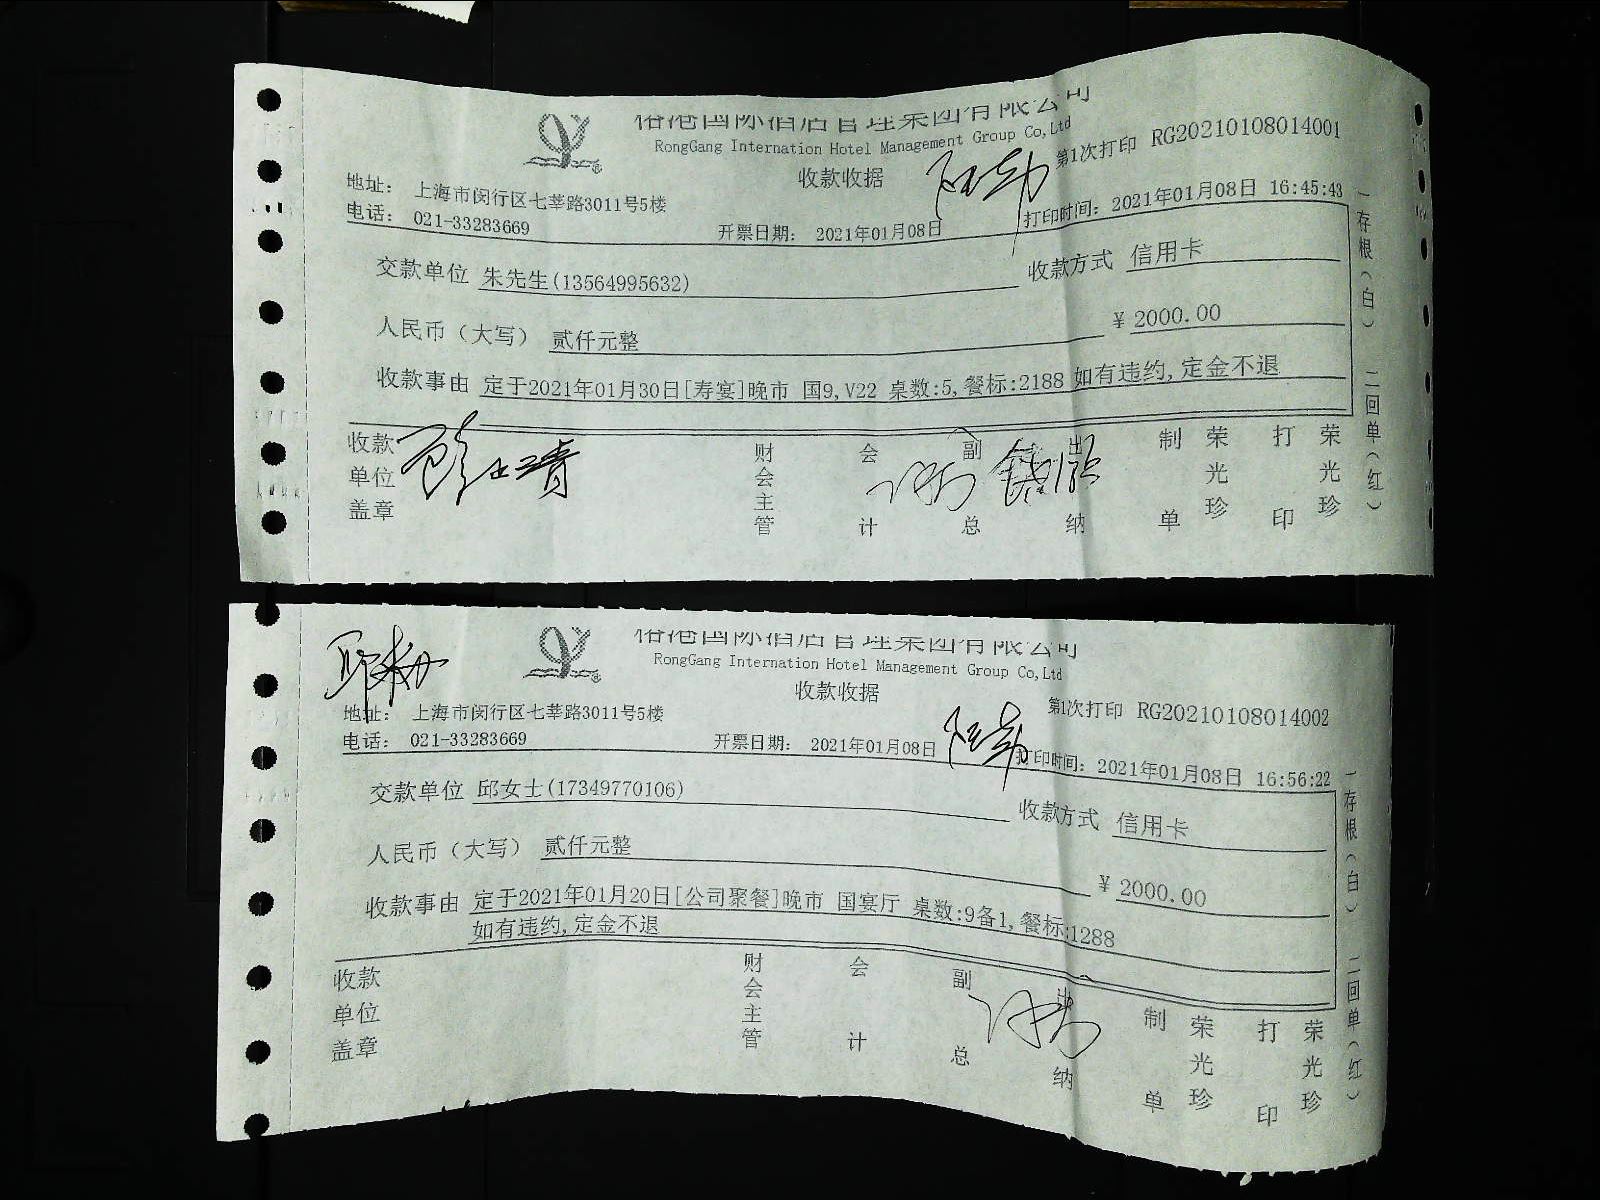 港国际酒店管理集团有限公司
RongGang Internation Hotel Management Group Co,Ltd
收款收据
第1次打印 RG20210108014001
地址： 上海市闵行区七莘路3011号5楼
电话： 021-33283669
开票日期： 2021年01月08日
打印时间：2021年01月08日 16:45:43
交款单位 朱先生(13564995632)
收款方式 信用卡
人民币（大写） 贰仟元整
￥2000.00
收款事由 定于2021年01月30日[寿宴]晚市 国9,V22 桌数:5,餐标:2188 如有违约,定金不退
收款单位盖章
财会主管
会计
副总
出纳
制单
荣光珍
打印
荣光珍
一存根（白） 二回单（红）
港国际酒店管理集团有限公司
RongGang Internation Hotel Management Group Co,Ltd
收款收据
第1次打印 RG20210108014002
地址： 上海市闵行区七莘路3011号5楼
电话： 021-33283669
开票日期： 2021年01月08日
打印时间：2021年01月08日 16:56:22
交款单位 邱女士(17349770106)
收款方式 信用卡
人民币（大写） 贰仟元整
￥2000.00
收款事由 定于2021年01月20日[公司聚餐]晚市 国宴厅 桌数:9备1,餐标:1288
如有违约,定金不退
收款单位盖章
财会主管
会计
副总
出纳
制单
荣光珍
打印
荣光珍
一存根（白） 二回单（红）